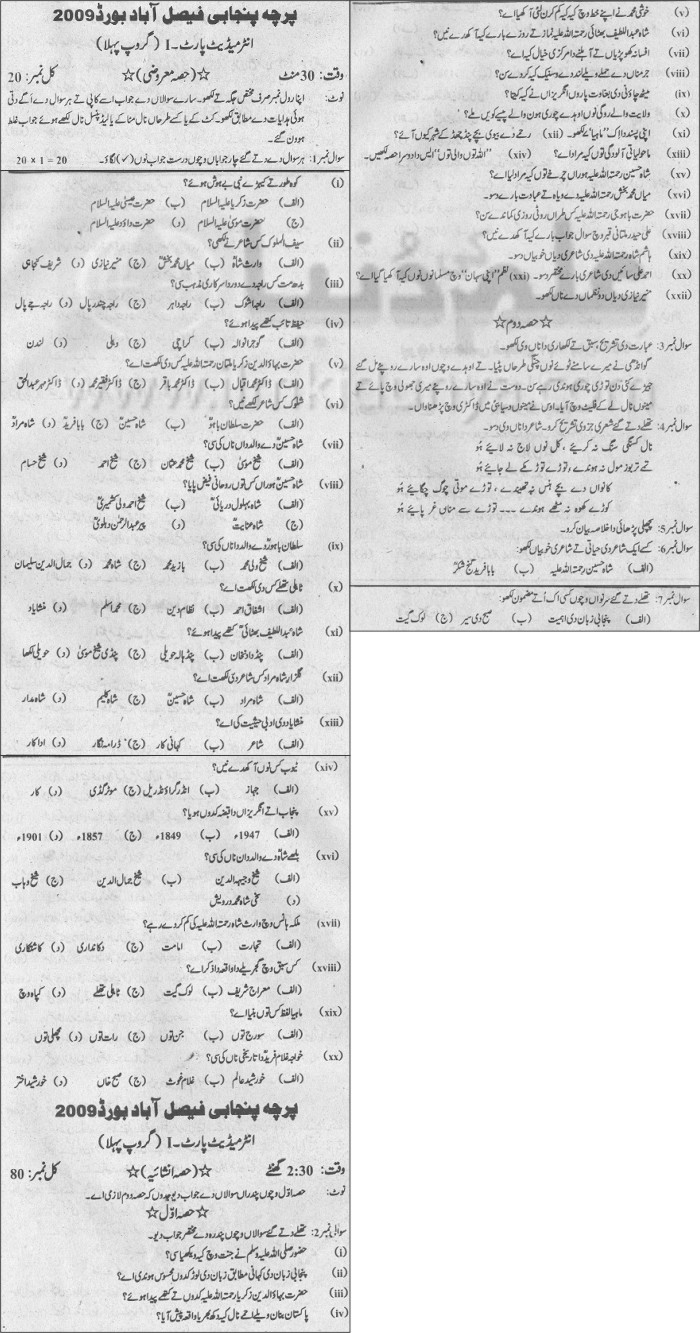 پرچہ پنجابی فیصل آباد بورڈ 2009
انٹرمیڈیٹ پارٹ۔I (گروپ پہلا)
وقت: 30 منٹ ☆(حصہ معروضی)☆ کل نمبر: 20
نوٹ: اپنا رول نمبر صرف مختص جگہ تے لکھو۔ سارے سوالاں دے جواب ایس کاپی تے ہر سوال دے اگے دتی
ہوئی ہدایات دے مطابق لکھو۔ کٹ کے یا کسے طرحاں نال مٹا کے یا لیڈ پنسل نال لکھے ہوئے جواب غلط
ہوون گے۔
سوال نمبر 1: ہر سوال دے دتے گئے چار جواباں وچوں درست جواب نوں (✓) لگاؤ۔ 20 × 1 = 20
(i) کوہ طور تے کیہڑے نبی بے ہوش ہوئے؟
(الف) حضرت زکریا علیہ السلام (ب) حضرت عیسیٰ علیہ السلام
(ج) حضرت موسیٰ علیہ السلام (د) حضرت داؤد علیہ السلام
(ii) سیف الملوک کس شاعر نے لکھی؟
(الف) وارث شاہ (ب) میاں محمد بخش (ج) منیر نیازی (د) شریف کنجاہی
(iii) بدھ مت کس راجے دے دور دا سرکاری مذہب سی؟
(الف) راجا اشوک (ب) راجا داہر (ج) راجہ چندر پال (د) راجہ جے پال
(iv) حفیظ تائب کتھے پیدا ہوئے؟
(الف) گوجرانوالہ (ب) کراچی (ج) دہلی (د) لندن
(v) حضرت بہاؤ الدین زکریا ملتان رحمتہ اللہ علیہ کس دی لکھت اے؟
(الف) ڈاکٹر محمد اقبال (ب) ڈاکٹر محمد باقر (ج) ڈاکٹر فقیر محمد (د) ڈاکٹر مہر عبدالحق
(vi) شلوک کس شاعر لکھے نیں؟
(الف) حضرت سلطان باہو (ب) شاہ حسین (ج) بابا فرید (د) شاہ مراد
(vii) شاہ حسین دے والد دا ناں کی سی؟
(الف) شیخ موسیٰ (ب) شیخ محمد عثمان (ج) شیخ احمد (د) شیخ حسام
(viii) شاہ حسین ہوراں کس توں روحانی فیض پایا؟
(الف) شاہ بہلول دریائی (ب) شیخ احمد ولی کشمیری
(ج) شاہ عنایت (د) پیر عبدالرحمٰن دہلوی
(ix) سلطان باہو دے والد دا ناں کی سی؟
(الف) شیخ ولی محمد (ب) بازید محمد (ج) شاہ محمد (د) جمال الدین سلیمان
(x) ٹاہلی تھلے کس دی لکھت اے؟
(الف) اشفاق احمد (ب) نظام دین (ج) محمد اسلم (د) منشا یاد
(xi) شاہ عبداللطیف بھٹائی کتھے پیدا ہوئے؟
(الف) پنڈ دادنخان (ب) پنڈ ہالہ حویلی (ج) پنڈی شیخ موسیٰ (د) حویلی لکھا
(xii) گلزار شاہ مراد کس شاعر دی لکھت اے؟
(الف) شاہ مراد (ب) شاہ حسین (ج) شاہ کلیم (د) شاہ مدار
(xiii) منشا یاد دی ادبی حیثیت کی اے؟
(الف) شاعر (ب) کہانی کار (ج) ڈرامہ نگار (د) اداکار
(xiv) ٹیوب کس نوں آکھدے نیں؟
(الف) جہاز (ب) انڈر گراؤنڈ ریل (ج) موٹر گڈی (د) کار
(xv) پنجاب اتے انگریزاں دا قبضہ کدوں ہویا؟
(الف) 1947ء (ب) 1849ء (ج) 1857ء (د) 1901ء
(xvi) بلھے شاہ دے والد دا ناں کی سی؟
(الف) شیخ وجیہہ الدین (ب) شیخ جمال الدین (ج) شیخ وہاب
(د) سخی شاہ محمد درویش
(xvii) ملکہ ہانس وچ وارث شاہ رحمتہ اللہ علیہ کی کم کردے رہے؟
(الف) تجارت (ب) امامت (ج) دکانداری (د) کاشتکاری
(xviii) کس سبق وچ گھریلے دا واقعہ دا ذکر اے؟
(الف) معراج شریف (ب) لوک گیت (ج) ٹاہلی تھلے (د) کپاہ وچ
(xix) ماہیا لفظ کس توں بنیا اے؟
(الف) سورج توں (ب) جن توں (ج) رات توں (د) مچھلی توں
(xx) خواجہ غلام فرید دا تاریخی ناں کی سی؟
(الف) خورشید عالم (ب) غلام غوث (ج) صبح خاں (د) خورشید اختر
پرچہ پنجابی فیصل آباد بورڈ 2009
انٹرمیڈیٹ پارٹ۔I (گروپ پہلا)
وقت: 2:30 گھنٹے ☆(حصہ انشائیہ)☆ کل نمبر: 80
نوٹ: حصہ اول وچوں پندراں سوالاں دے جواب دیو جدوں کہ حصہ دوم لازمی اے۔
☆حصہ اول☆
سوال نمبر 2: تھلے دتے گئے سوالاں وچوں پندرہ دے مختصر جواب دیو۔
(i) حضور صلی اللہ علیہ وسلم نے جنت وچ کیہ ویکھیا سی؟
(ii) پنجابی زبان دی کہانی مطابق زبان دی لوڑ کدوں محسوس ہوندی اے؟
(iii) حضرت بہاؤ الدین زکریا رحمتہ اللہ علیہ کدوں تے کتھے پیدا ہوئے؟
(iv) پاکستان بنان ویلے احمے نال کیہ دکھ بھریا واقعہ پیش آیا؟
(v) خوشی محمد نے اپنے خط وچ کیہ کیہ کم کرن لئی آکھیا اے؟
(vi) شاہ عبداللطیف بھٹائی رحمتہ اللہ علیہ نماز تے روزے بارے کیہ آکھدے نیں؟
(vii) افسانہ کھوپڑیاں تے آہلنے دا مرکزی خیال کیہ اے؟
(viii) جرمناں دے حملے ویلے لندن دے وسنیک کیہ کردے سن؟
(ix) میٹھ چاؤنی دی بغاوت پاروں انگریزاں نے کیہ کیتا؟
(x) ولایت والے روگی نوں اوہدے چوری ہون والے پیسے کویں ملے؟
(xi) اپنی پسند دا اک "ماہیا" لکھو۔ (xii) رتے دے بیوی بچے پنڈ چھڈ کے شہر کیوں آئے؟
(xiii) ماحولیاتی آلودگی توں کیہ مراد اے؟ (xiv) "اللہ توں والی توں" ایس دا دوسرا حصہ لکھیں۔
(xv) شاہ حسین رحمتہ اللہ علیہ ہوراں چرخے توں کیہ مراد لیا اے؟
(xvi) میاں محمد بخش رحمتہ اللہ علیہ دے ویاہ تے عبادت بارے دسو۔
(xvii) حضرت باہو جی رحمتہ اللہ علیہ کس طراں روٹی روزی کماندے سن؟
(xviii) علی حیدر ملتانی قبر وچ سوال جواب بارے کیہ آکھدے نیں؟
(xix) ہاشم شاہ رحمتہ اللہ علیہ دی شاعری دیاں خوبیاں دسو۔
(xx) احمد علی سائیں دی شاعری بارے مختصر دسو۔ (xxi) نظم "اپنی سہان" وچ مسلمانوں نوں کیہ آکھیا گیا اے؟
(xxii) منیر نیازی دیاں دو نظماں دے ناں لکھو۔
☆حصہ دوم☆
سوال نمبر 3: عبارت دی تشریح، سبق تے لکھاری دا ناں وی لکھو۔
گوانڈھی نے میرے سامنے ٹوئے نوں چنگی طرحاں پٹیا۔ تے اوہدے وچوں اوہ سارے روپئے مل گئے
جیہڑے کئی دن توڑی چوری ہوندی رہے سن۔ دوست نے اوہ سارے روپئے میری جھولی وچ پائے تے
مینوں نال لے کے فلیٹ وچ آیا۔ اوس نے مینوں دسیا پئی میں ڈاکٹری وچ پڑھناواں۔
سوال نمبر 4: تھلے دتے گئے شعری جز دی تشریح کرو۔ شاعر دا ناں وی دسو۔
نال کسنگی سنگ نہ کریئے، کل نوں لاج نہ لائیے ہُو
تے تربوز مول نہ ہوندے، توڑے توڑ مکے لے جائیے ہُو
کانواں دے بچے ہنس نہ تھیندے، توڑے موتی چوگ چگائیے ہُو
کوڑے کھوہ نہ مٹھے ہوندے ۔۔۔ توڑے سے مناں کھنڈ پائیے ہُو
سوال نمبر 5: پچھلی پڑھائی دا خلاصہ بیان کرو۔
سوال نمبر 6: کسے ایک شاعر دی حیاتی تے شاعری دیاں خوبیاں لکھو:
(الف) شاہ حسین رحمتہ اللہ علیہ (ب) بابا فرید گنج شکر
سوال نمبر 7: تھلے دتے گئے سرنانواں وچوں کسی اک اُتے مضمون لکھو:
(الف) پنجابی زبان دی اہمیت (ب) صبح دی سیر (ج) لوک گیت